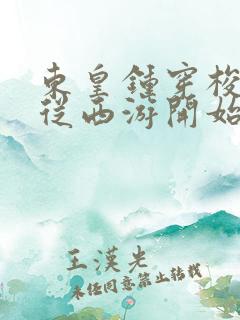 東皇鍾穿梭
從西游開始
王漢光
未經同意禁止轉載